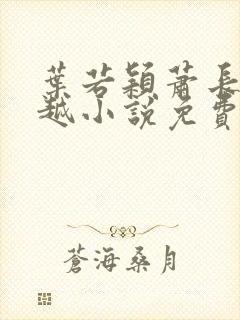 葉若穎蕭長
越小說免費
蒼海桑月